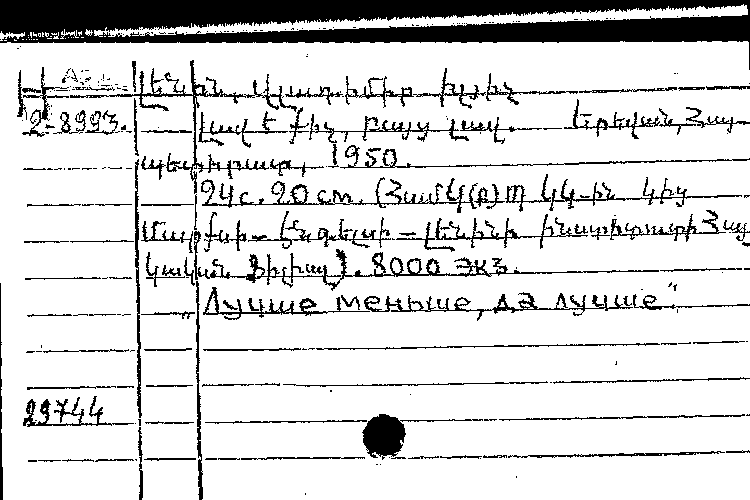 Լենին, Վլադիմիր Իլյիչ
2-8993. Լավ է քիչ, բայց լավ. Երեվան, Հայ-
պետհրատ, 1950.
24 с. 20 см. (Համ Կ(բ)Պ ԿԿ-ին կից
Մարքսի – Էնգելսի – Լենինի ինստիտուտի Հայ
կական Ֆիլիալ). 8000 экз.
„Лучше меньше, да лучше“
29744